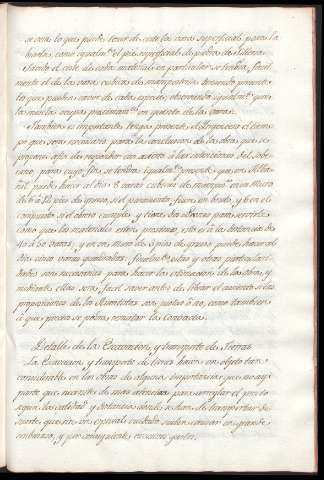 se verá lo que puede tener de coste las varas superficial para la
huella, como igualm.te el pie superficial de piedra de silleria.
Sabido el coste de cada material en particular se sabrá facil
mente el de las varas cubicas de mamposteria teniendo presente
lo que puede caver de cada especie, observando igualm.te que
las mezclas ocupan proximam.te un quarto de la vara.
Tambien es importante tenga presente el Ingeniero el tiem
po que sera necesario para la conclusion de las obras que se
proponen afin de responder con acierto á las intenciones del sobe
rano; para cuyo fin se tendra igualm.te presente que un Alba
nil puede hacer al dia 2 varas cubicas de mamp.a en un Muro
de 6 á 12 pies de grueso, si el paramento fuere en bruto, y 6 en el
compuesto si el oficio cumple y tiene dos obreros para servirle
como que los materiales esten proximos, esto es á la distancia de
40 á 50 varas, y en un muro de 3 pies de grueso puede hacer al
dia cinco varas quadradas. finalm.te estas y otras particulari
dades son necesarias para hacer la estimacion de las obras, y
mediante ellas será facil saver antes de librar el asiento si las
proposiciones de los Asentistas son justas ó no, como tambien
á que precio se podrá rematar la Contrata.
Detalle de la Excavacion, y transporte de Tierras
La Excavacion y transporte de tierras hacen un objeto tan
considerable en las obras de alguna importancia que no hay
parte que necesite de mas atencion para arreglar el precio
segun la calidad y distancia donde se han de transportar de
suerte, que sin un especial cuidado suelen causar un grande
embarazo, y por consiguiente excesivos gastos.